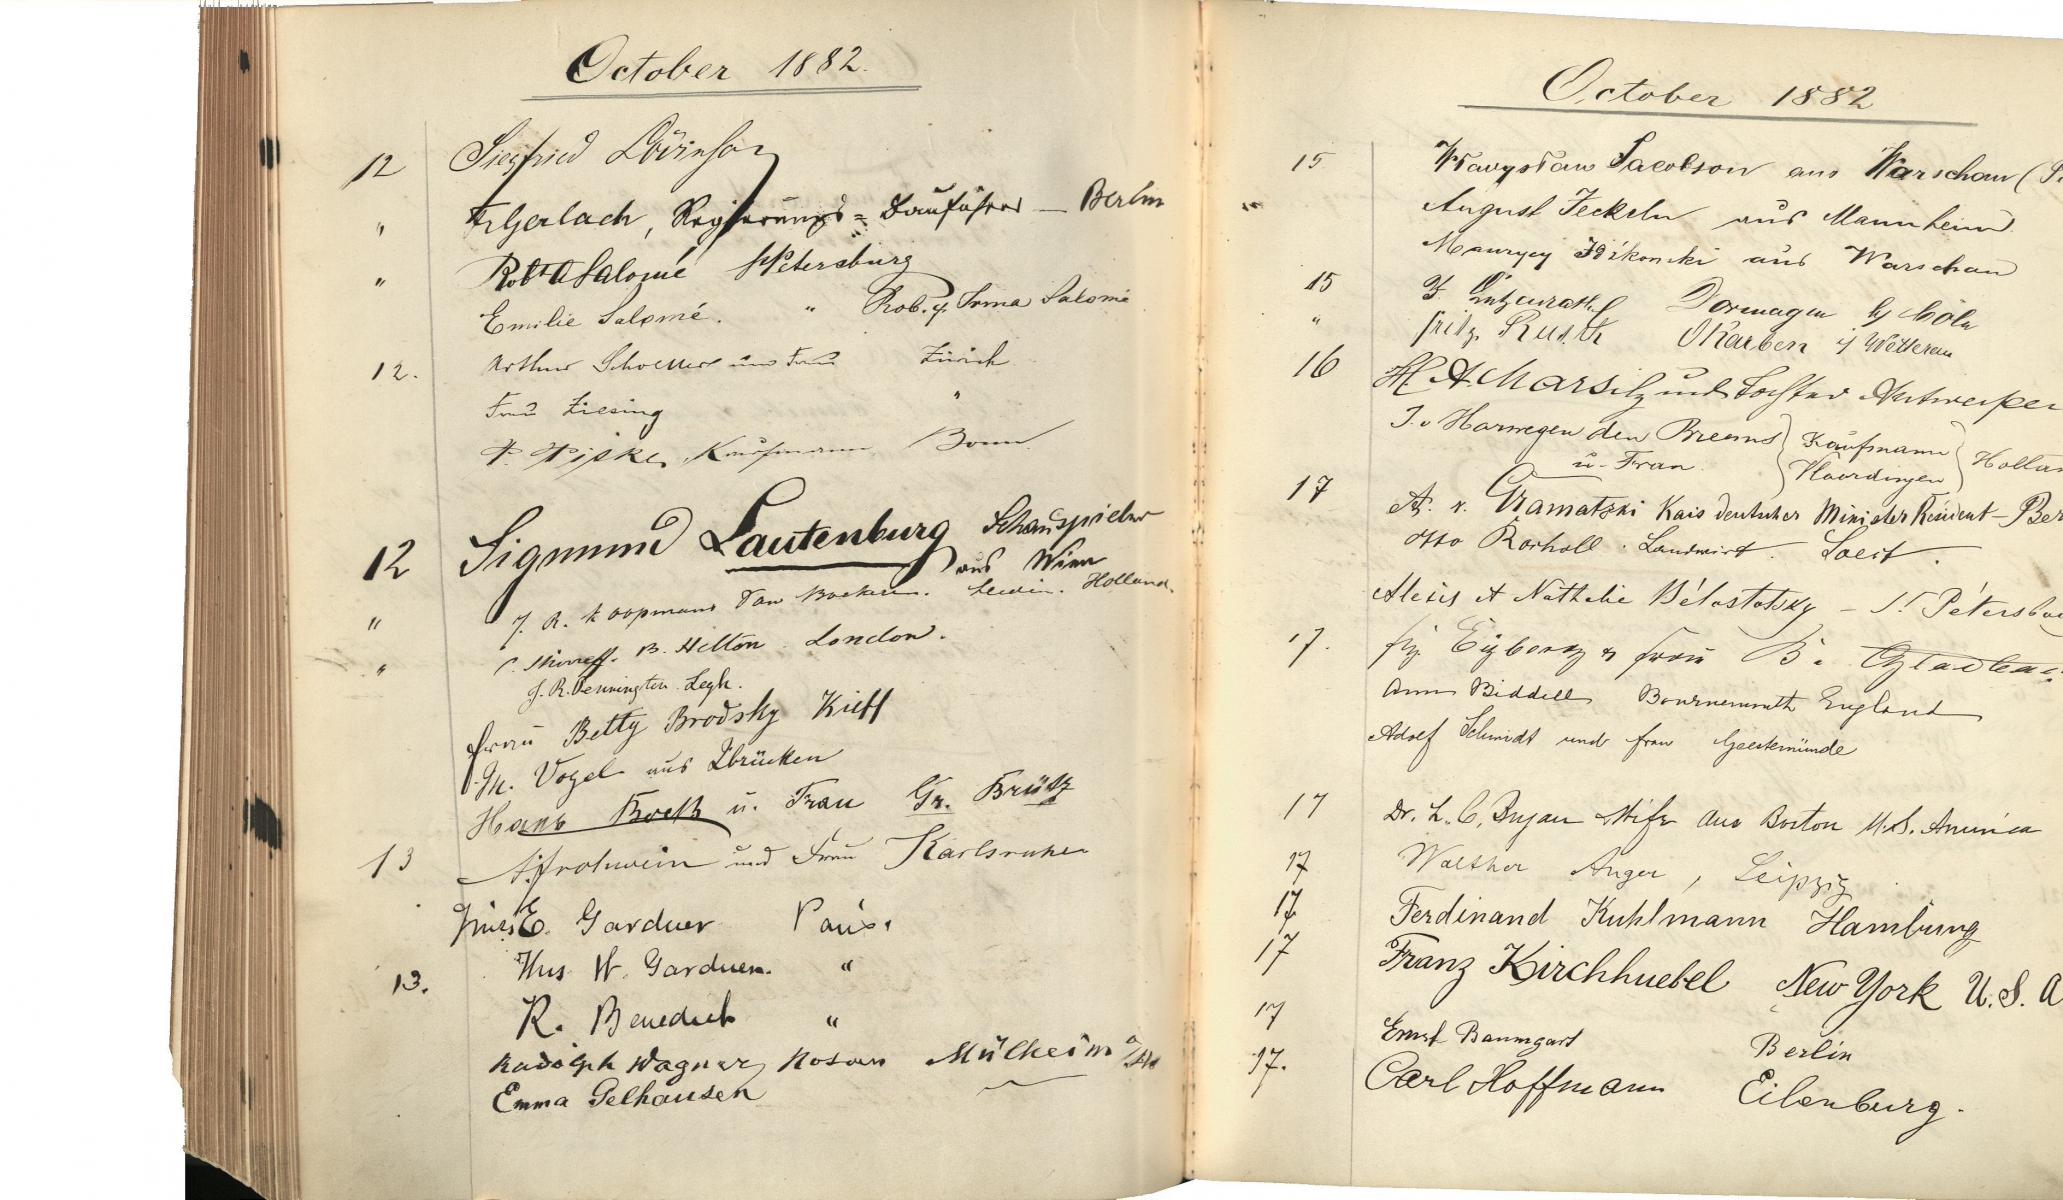 October 1882.
12 Siegfried Lövinson
" Gerlach, Regierungs=Bauführer — Berlin
" Robt A Salomé St Petersburg
Emilie Salomé. " Rob. y. Irma Salomé
12. Arthur Schoeller und Frau Zürich
Frau Ziesing "
Kaufmann Bonn
12 Sigmund Lautenburg Schauspieler
aus Wien
" J. R. Koopmans van Boekeren. Holland.
" B. Hilton London.
J. R. Pennington Legh.
Frau Betty Brodsky Kieff
Vogel aus Zbrücken
Hans u. Frau Gr. Brütz
13 und Frau Karlsruhe
E. Gardner Paris.
13. W. Gardner. "
R. Benedict "
Rudolph Wagner Mülheim
Emma Gelhausen
October 1882
15 Jacobson aus Warschau
August Teckeln aus Mannheim
Maurycy aus Warschau
15 Dormagen b/ Cöln
" Fritz OKarben i/ Wetterau
16 H. A. Marsily und Tochter Antwerpen
J. v Harwegen den Breems Kaufmann
u. Frau Vlaardingen
17 A. v. Gramatzki Kais deutscher Minister Resident —
Otto Rocholl. Landwirt. Soest.
Alexis et Nathalie Bélostotsky — St Pétersb
17. Frau
Ann Biddell Bournemouth England
Adolf Schmidt und Frau Geestemünde
17 Dr. L. C. Wife aus Boston U.S. America
17 Walther Anger, Leipzig
17 Ferdinand Kuhlmann Hamburg
17 Franz Kirchhuebel New York U. S. A
17 Ernst Baumgart Berlin
17. Carl Hoffmann Eilenburg.